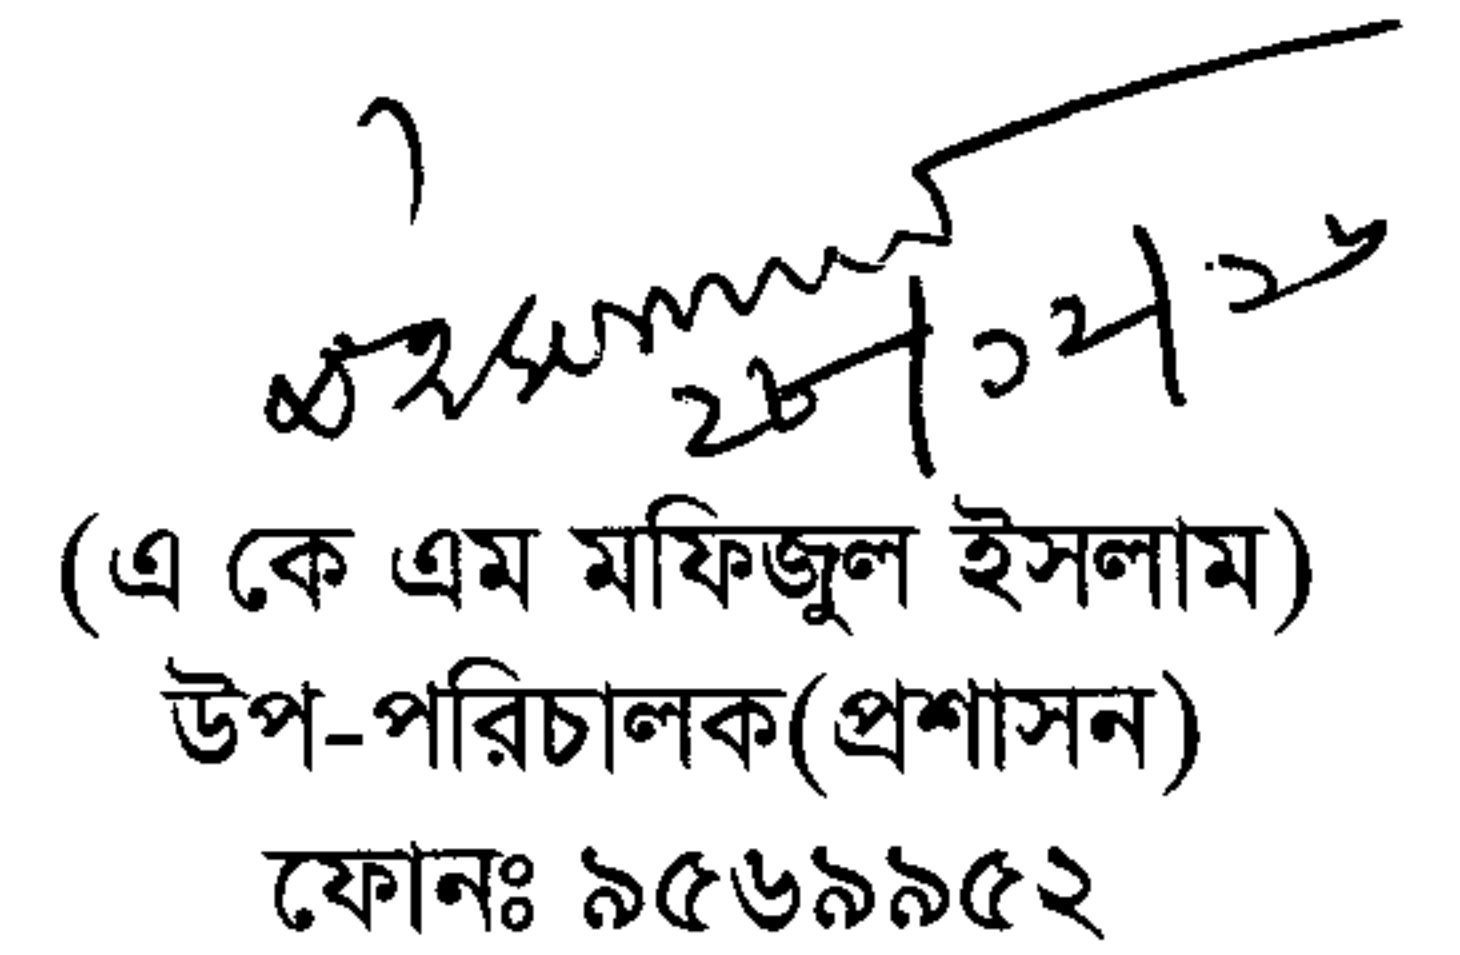 (এ কে এম মফিজুল ইসলাম)
উপ-পরিচালক(প্রশাসন)
ফোনঃ ৯৫৬৯৯৫২